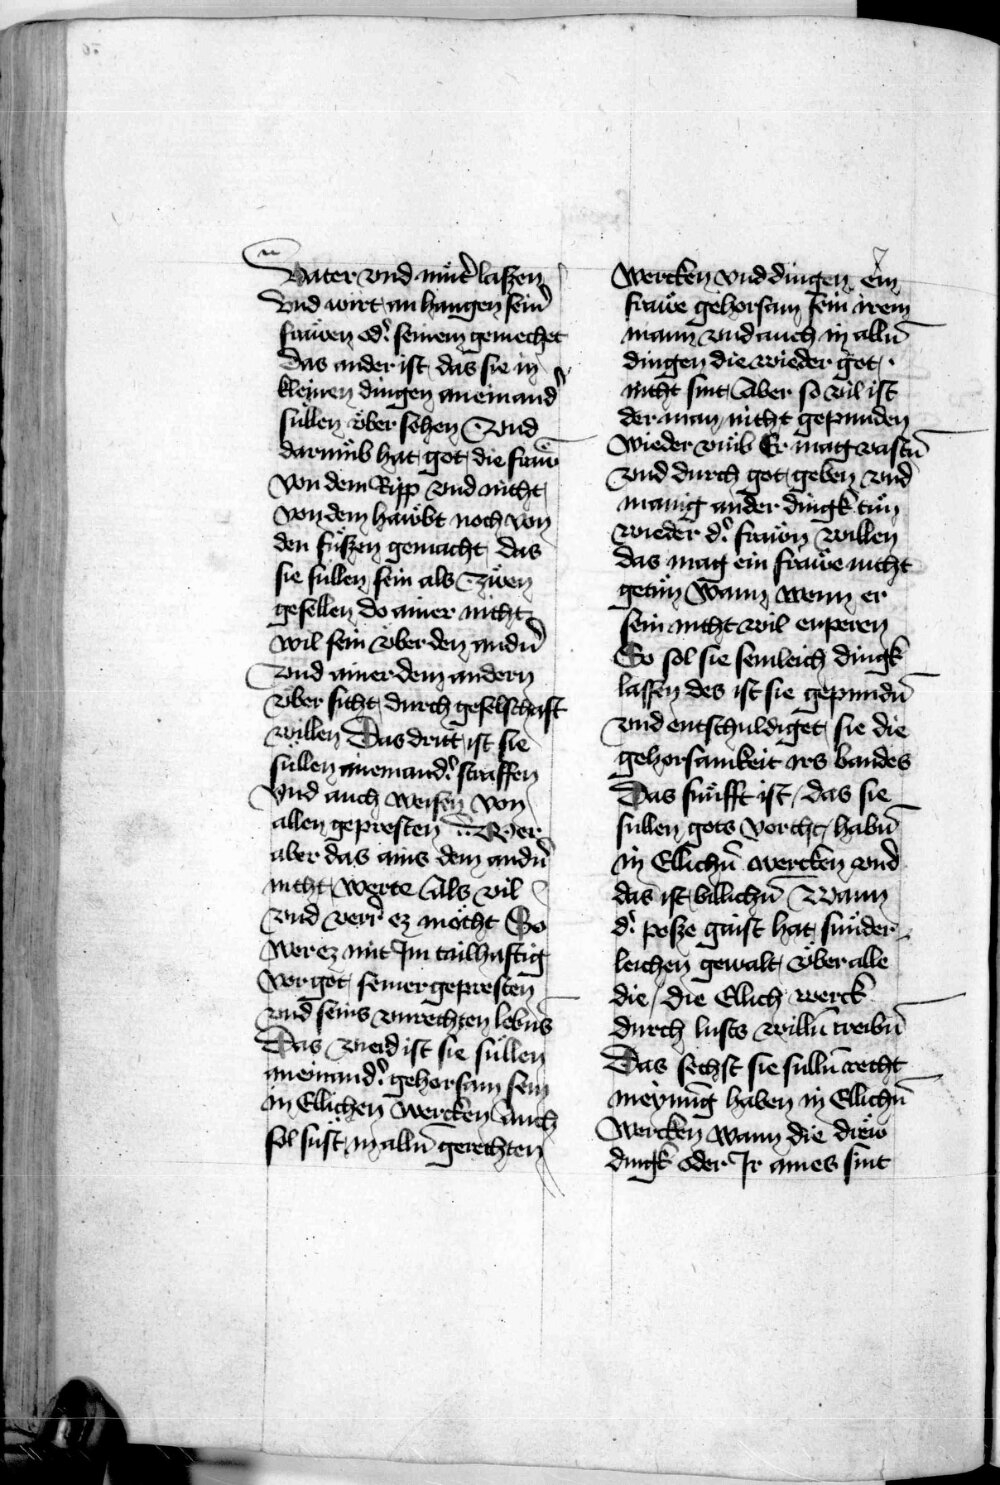 Vater vnd mut̄ʼ laſzen
Vnd wirt an hangen ſeinʼ
frawen odʼ ſeinem gemechet
Das ander iſt das ſie in
kleinen dingen aneinandʼ
ſullen v̈ber ſehen Vnd
darumb hat got die fraẅ
Von dem Ripp vnd nicht
von dem hawbt noch von
den fuſzen gemacht das
ſie ſullen ſein als czwen
geſellen do ainer nicht
wil ſein v̈ber den andn̄ʼ
vnd ainer dem andern
v̈ber ſicht durch geſelſchaft
willen Das dritt iſt ſie
ſullen aneinandʼ ſtraffen
Vnd auch weiſen von
allen gepreſten Wer
aber das ains dem andn̄ʼ
nicht werte Als vil
vnd verr ez mocht So
wer ez mit Im tailhaftig
vor got ſeiner gepreſten
vnd ſeins vnrechten lebn̄s
Das vierd iſt ſie ſullen
aneinandʼ gehorſam ſein
in Ellichen wercken Auch
ſol ſuſt in alln̄ gerechten
wercken vnd dingen ein
frawe gehorſam ſein irem
mann vnd auch in alln̄
dingen die wieder got
nicht ſint Aber ſo vil iſt
der man nicht gepunden
wieder vmb Er mag vaſtn̄
vnd durch got geben vnd
manig ander dingk tun
wieder dʼ frawn willen
das mag ein frawe nicht
getun Wann wenn er
ſein nicht wil enperen
So ſol ſie ſemleich dingk
laſſen des iſt ſie gepundn̄
vnd entſchuldiget ſie die
gehorſamkeit irs bandes
Das funfft iſt das ſie
ſullen gots vorcht habn̄
in Ellichn̄ wercken vnd
das iſt billichn̄ Wann
dʼ poſze gaiſt hat ſunder
leichen gewalt v̈ber alle
die die Ellich werck
durch luſts willn̄ treibn̄
Das ſechſt ſie ſulln̄ recht
meynung haben in Ellichn̄
Wercken wann die drew
dingk oder Ir aines ſint